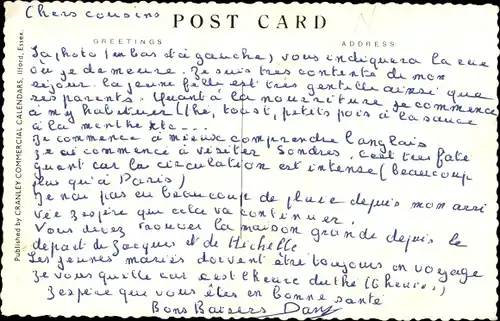 Chers cousins
POST CARD
GREETINGS
ADDRESS
La photo (en bas à gauche) vous indiquera la rue
où je demeure. Je suis très contente de mon
séjour. la jeune fille est très gentille ainsi que
ses parents. Quant à la nourriture je commence
à m'y habituer (thé, toast, petits pois à la sauce
à la menthe etc....
Je commence à mieux comprendre l'anglais
Je ai commencé à visiter Londres. c'est très fati
guant car la circulation est intense (beaucoup
plus qu'à Paris)
Je n'ai pas eu beaucoup de pluie depuis mon arri
vée j'espère que cela va continuer.
Vous devez trouver la maison grande depuis le
départ de Jacques et de Michelle
Les jeunes mariés doivent être toujours en voyage
Je vous quitte car c'est l'heure du thé (6 heures)
J'espère que vous êtes en bonne santé
Bons Baisers Dany
Published by CRANLEY COMMERCIAL CALENDARS, Ilford, Essex.